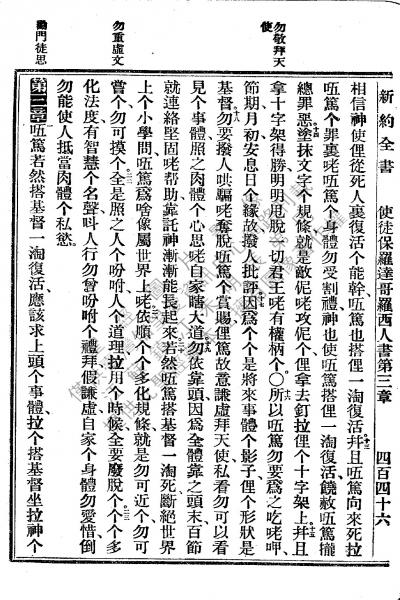 新約全書 使徒保羅達哥羅西人書第三章 四百四十六
勿敬拜天使
勿重虛文
勸門徒思
相信神使俚從死人裏復活个能幹㕶篤也搭俚一淘復活幷且㕶篤向來死拉
㕶篤个罪裏咾㕶篤个身體勿受割禮神也使㕶篤搭俚一淘復活饒赦㕶篤攏
總罪惡塗抹文字个規條就是敵伲咾攻伲个俚拿去釘拉俚个十字架上幷且
拿十字架得勝明明甩脫一切君王咾有權柄个〇所以㕶篤勿要爲之吃咾呷
節期月初安息日个緣故撥人批評因爲个个是將來事體个影子俚个形狀是
基督勿要撥人哄騙咾奪脫㕶篤个賞賜俚篤故意謙虛拜天使私看勿可以看
見个事體照之肉體个心思咾自家瞎大道勿依靠頭因爲全體靠之頭末百節
就連絡堅固咾幫助靠託神漸漸能長起來若然㕶篤搭基督一淘死斷絕世界
上个小學問㕶篤爲啥像屬世界上咾依順个个多化規條就是勿可近个勿可
嘗个勿可摸个全是照之人个吩咐人个道理拉用个時候全要廢脫个个个多
化法度有智慧个名聲呌人行勿曾吩咐个禮拜假謙虛自家个身體勿愛惜倒
勿能使人抵當肉體个私慾
第三章㕶篤若然搭基督一淘復活應該求上頭个事體拉个搭基督坐拉神个